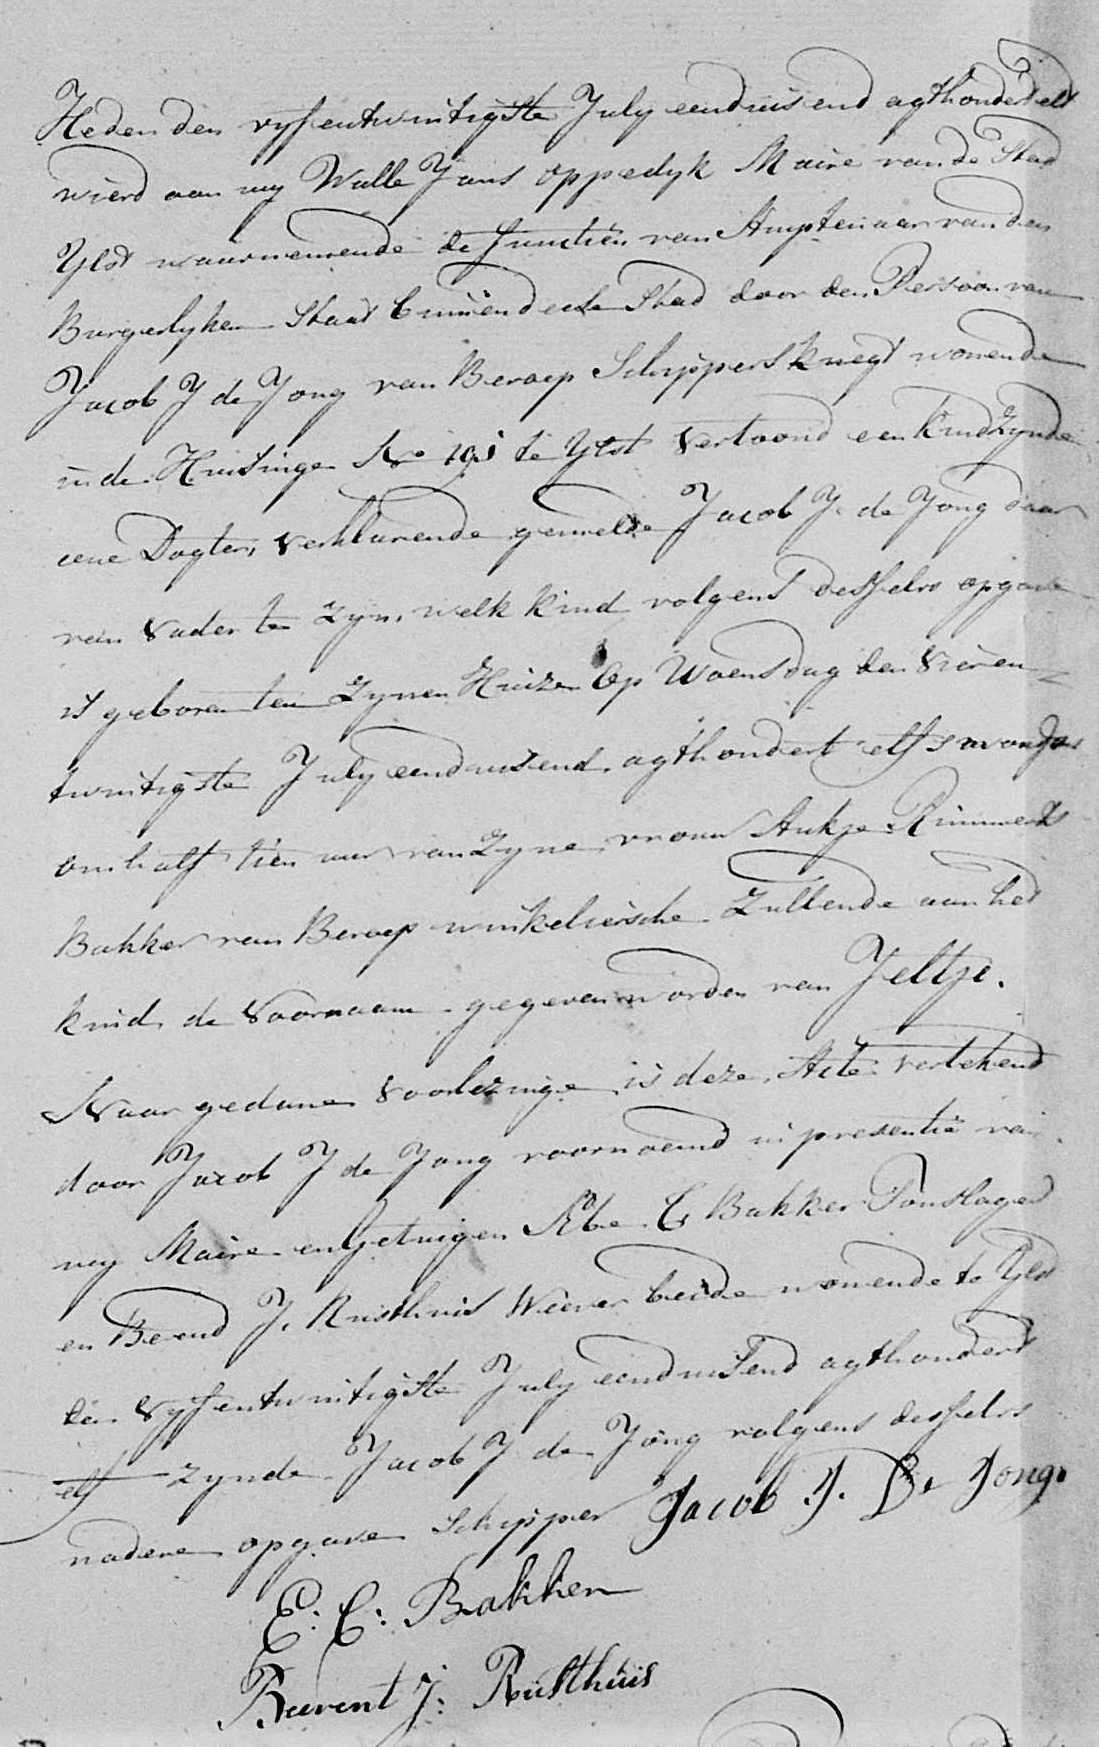 Heden den vyfentwintigste July eenduisend agthondert elf
wierd aan my Walle Jans Oppedyk Maire van de Stad
Ylst waarnemende de functiën van Amptenaar van den
Burgerlyken Staat binnen deeze Stad door den Persoon van
Jacob J de Jong van Beroep Schippersknegt wonende
in de Huisinge No 191 te Ylst vertoond een kind zynde
eene Dogter, verklarende gemelde Jacob J. de Jong daar
van vader te zyn, welk kind volgens desselvs opgave
is geboren ten zynen Huize Op Woensdag den vieren
twintigste July eenduisend agthondert elf s avonds
om half tien uur van zyne vrouw Aukje Rimmerts
Bakker van Beroep winkeliersche Zullende aan het
kind de voornaam gegeven worden van Jeltje.
Naar gedane voorlezinge is deze Acte vertekend
door Jacob J de Jong voornoemd in presentie van
my Maire en getuigen Ebe C Bakker Touslager
en Berend J. Rusthuis Wiever beide wonende te Ylst
den vyfentwintigste July eenduisend agthondert
elf zynde Jacob J de Jong volgens desselvs
nadere opgave Schipper Jacob J. De Jong.
E: C: Bakker
Beerent J: Rusthuis